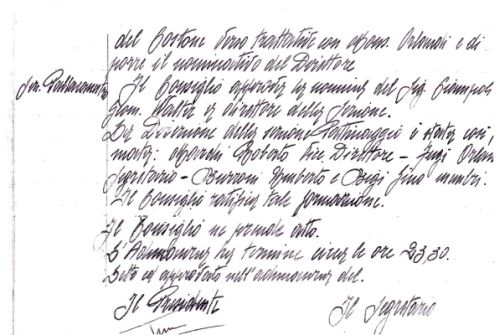 del Bastone trattative con Orlandi e di
porre il nominativo del Direttore
Il Consiglio approva la nomina del Sig. Ciampoli
Gian. Walter a direttore della Sezione.
La Direzione della sezione Pattinaggio è stata così
Roberto Vice Direttore - Luigi Orlan
Segretario - Burroni Umberto e Bigi Gino membri.
Il Consiglio ratifica tale formazione.
Il Consiglio ne prende atto.
L'Adunanza ha termine circa le ore 23,30.
Letto ed approvato nell'adunanza del.
Il Presidente
Il Segretario